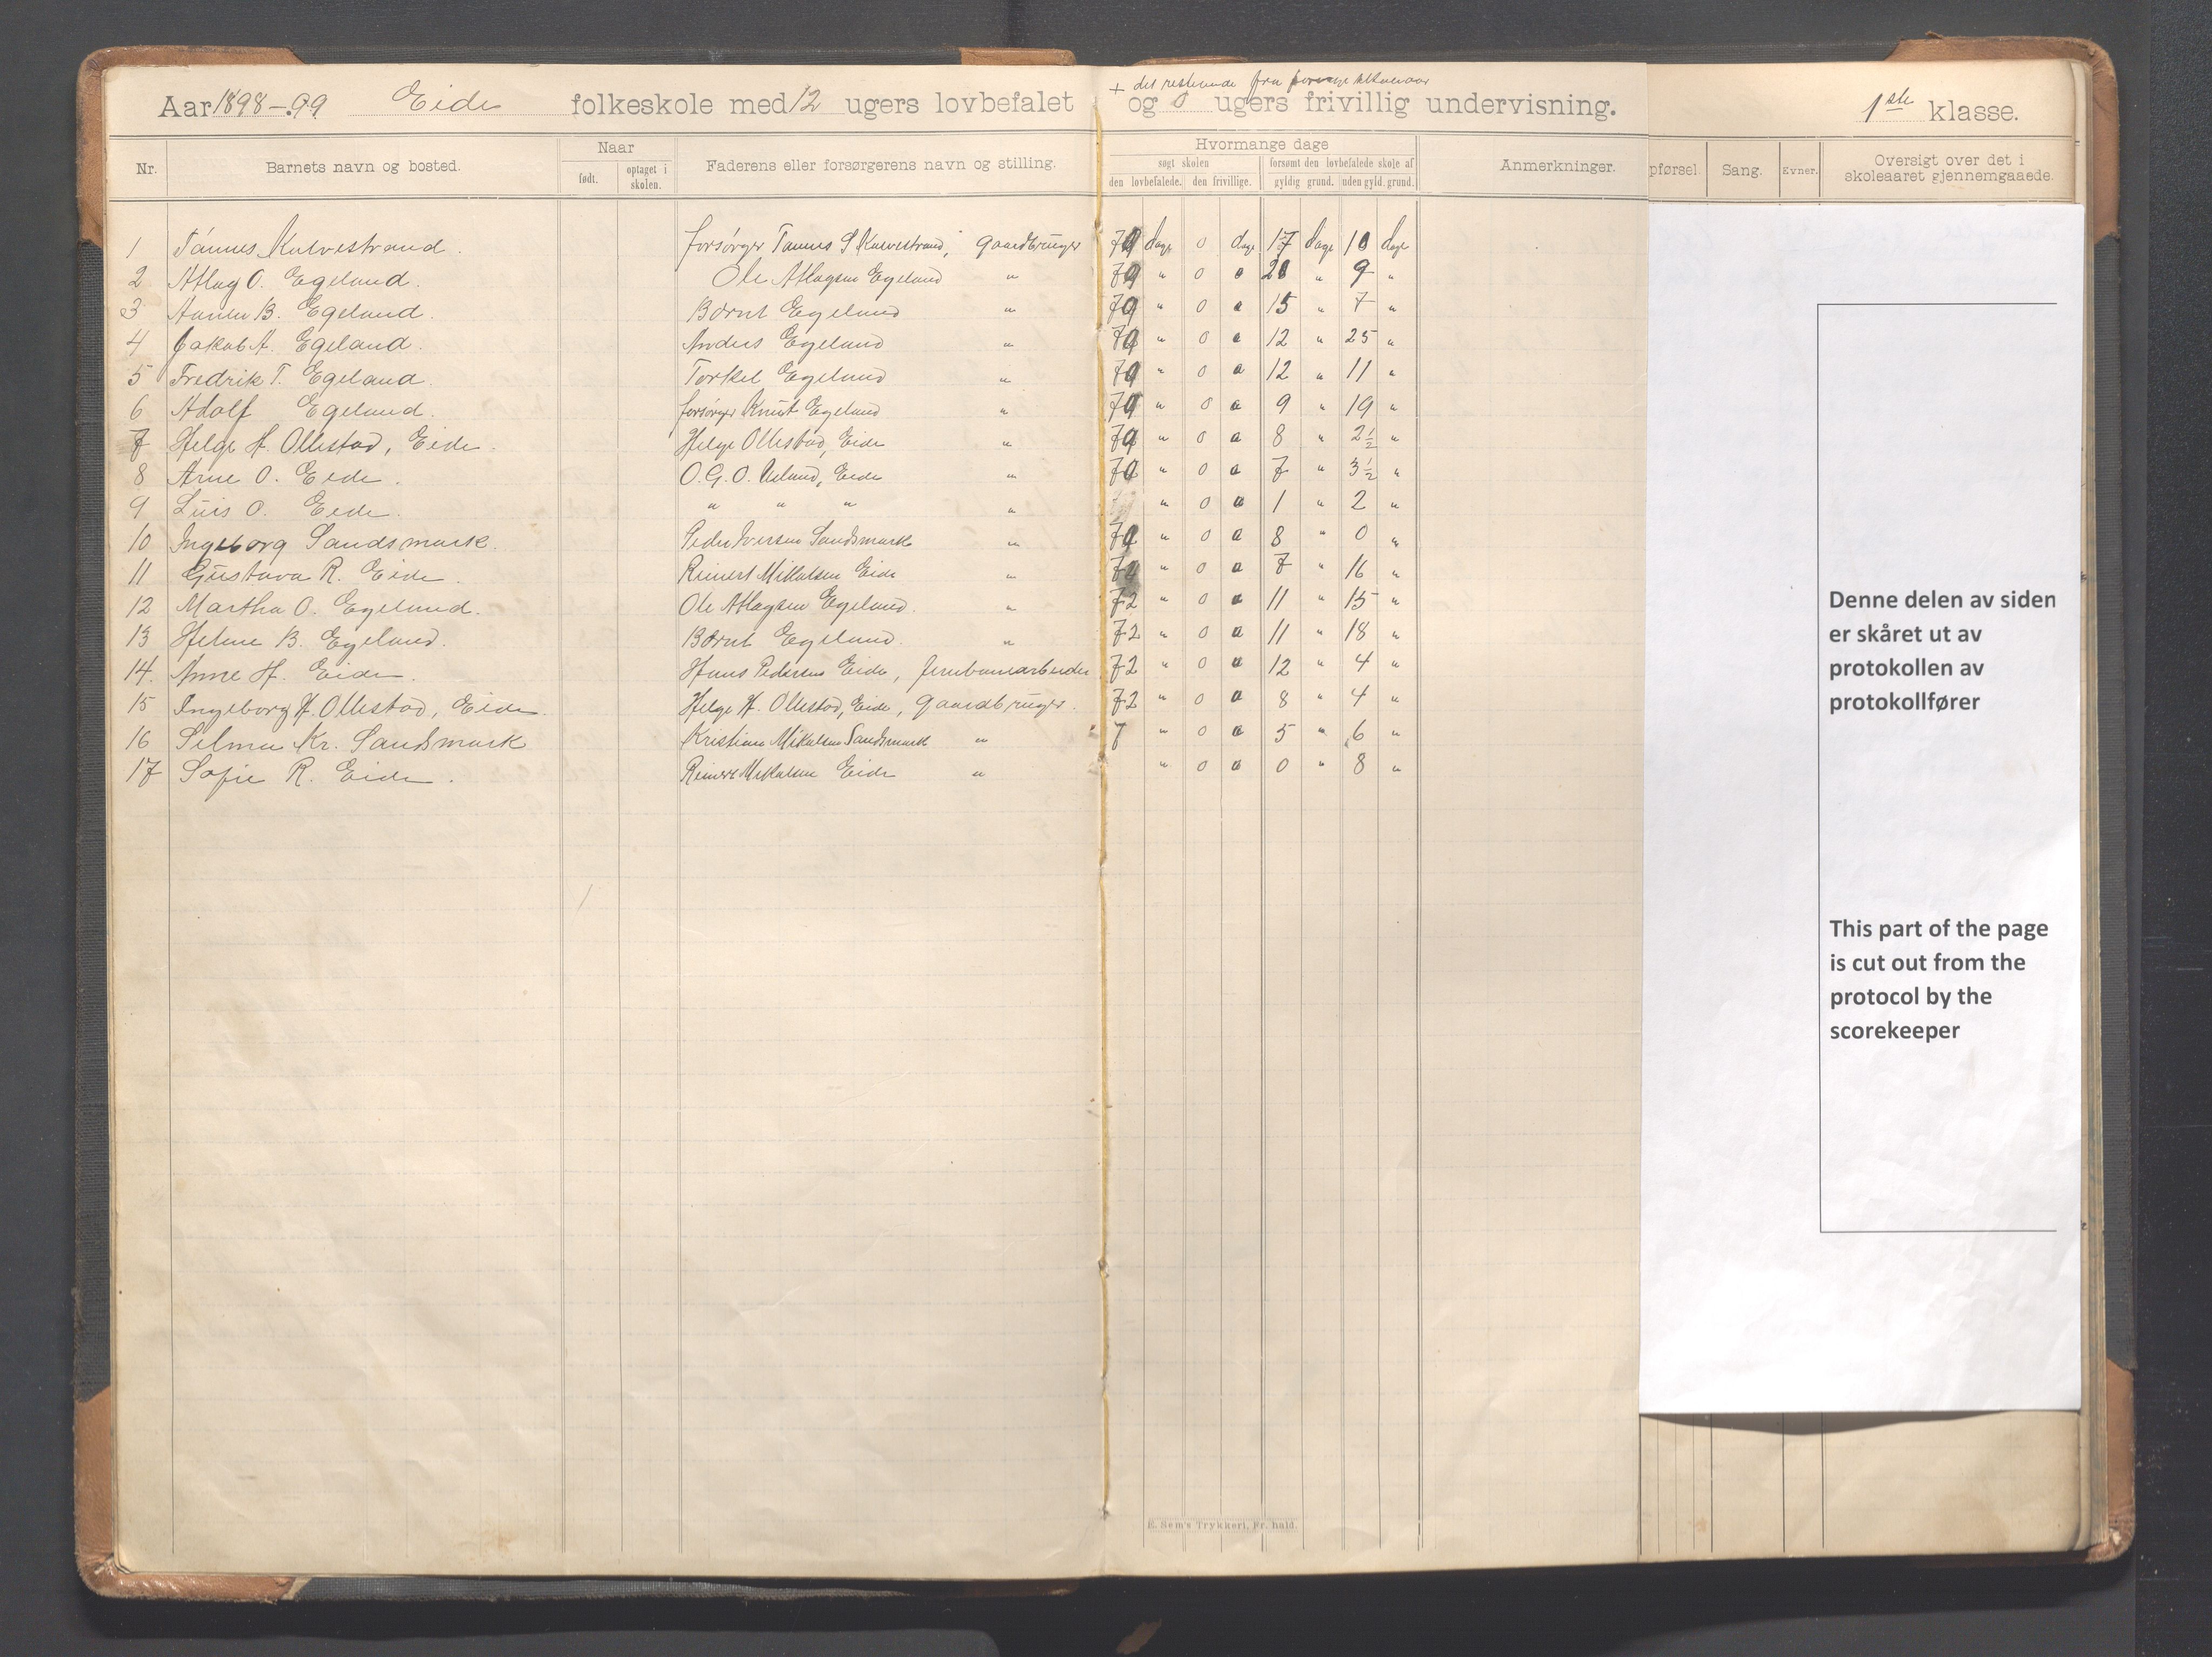 + det resterende fra forrige skoleaar
Aar 1898-99 Eide folkeskole med 12 ugers lovbefalet og 0 ugers frivillig undervisning. 1ste klasse.
Nr. Barnets navn og bosted. Naar født. optaget i skolen. Faderens eller forsørgerens navn og stilling.
Hvormange dage
søgt skolen forsømt den lovbefalede skole af
den lovbefalede. den frivillige. gyldig grund. uden gyld. grund.
Anmerkninger. pførsel. Sang. Evner. Oversigt over det i skoleaaret gjennemgaaede.
1 Tønnes Kulvestrand. forsørger Tønnes S Kulvestrand, gaardbruger dage 0 dage 17 dage 10 dage
2 Atlag O. Egeland. Ole Atlagsen Egeland " " 0 " 9 "
3 B. Egeland. Bernt Egeland " " 0 15 " 7 "
4 Jakob A. Egeland. Anders Egeland " " 0 12 " 25 "
5 Fredrik T. Egeland. Torkel Egeland " " 0 12 " 11 "
6 Adolf Egeland. forsørger Knut Egeland " " 0 9 " 19 "
7 Helge H. Ollestad, Eide. Helge Ollestad, Eide " " 0 8 " 2½ "
8 Arne O. Eide. O. G. O. Eide " " 0 7 " 3½ "
9 O. Eide. " " " " " 0 1 " 2 "
10 Ingeborg Sandsmark. Peder Iversen Sandsmark " " 0 8 " 0 "
11 Gustava R. Eide. Reinert Mikalsen Eide " " 0 7 " 16 "
12 Martha O. Egeland. Ole Atlagsen Egeland. " 72 " 0 11 " 15 "
13 Helene B. Egeland. Bernt Egeland. " 72 " 0 11 " 18 "
14. Anne H. Eide. Hans Pedersen Eide, jernbanearbeider 72 " 0 12 " 4 "
15 Ingeborg H. Ollestad, Eide. Helge H. Ollestad, Eide, gaardbruger. 72 " 0 8 " 4 "
16 Selma Kr. Sandsmark Kristian Mikalsen Sandsmark " 7 " 0 5 " 6 "
17 Sofie R. Eide. Reinert Mikalsen Eide " " 0 0 " 8 "
Denne delen av siden
er skåret ut av
protokollen av
protokollfører
This part of the page
is cut out from the
protocol by the
scorekeeper
E. Sem's Trykkeri, Fr. hald.